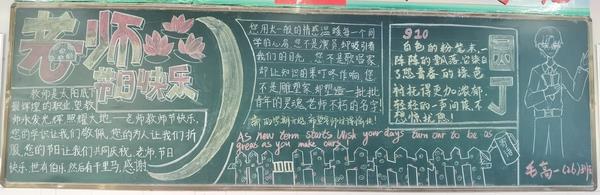 老师
节日快乐
教师是太阳底下
最辉煌的职业,望教
师永发光辉,照耀大地—老师教师节快乐,
您的学识让我们敬佩,您的为人让我们折
服,您的节日让我们共同庆祝,老师,节日
快乐,世有伯乐,然后有千里马,感谢!
您用火一般的情感温暖每一个同
学的心房,您不是演员,却吸引着
我们的目光,您不是歌唱家
却让知识的果叮咚作响,您
不是雕塑家,却塑造一批批
青年的灵魂,老师不朽的名字!
As new term starts Wish your days turn our to be as
great as you make ours
910
白色的粉笔末,一
阵阵的飘落,它染白
了您青春的绿色
衬托得更加浓郁,
轻轻的一声问候,不
想惊扰您!
毛高一(26)班